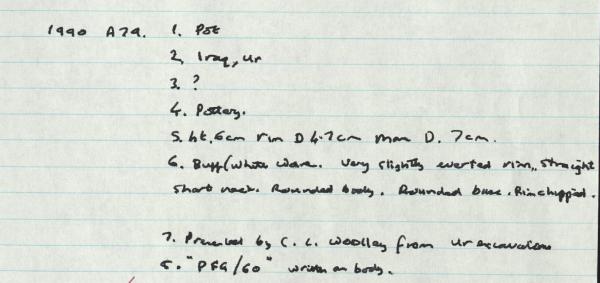 1990 A79. 1. Pot
2, Iraq, Ur
3. ?
4. Pottery.
5. ht. 6cm rim D 4.7cm max D. 7cm.
6. Buff/white ware. Very slightly everted rim, straight
short neck. Rounded body. Rounded base. Rim chipped.
7. Presented by C. L. Woolley from Ur excavations
8. "PFG/60" written on body.